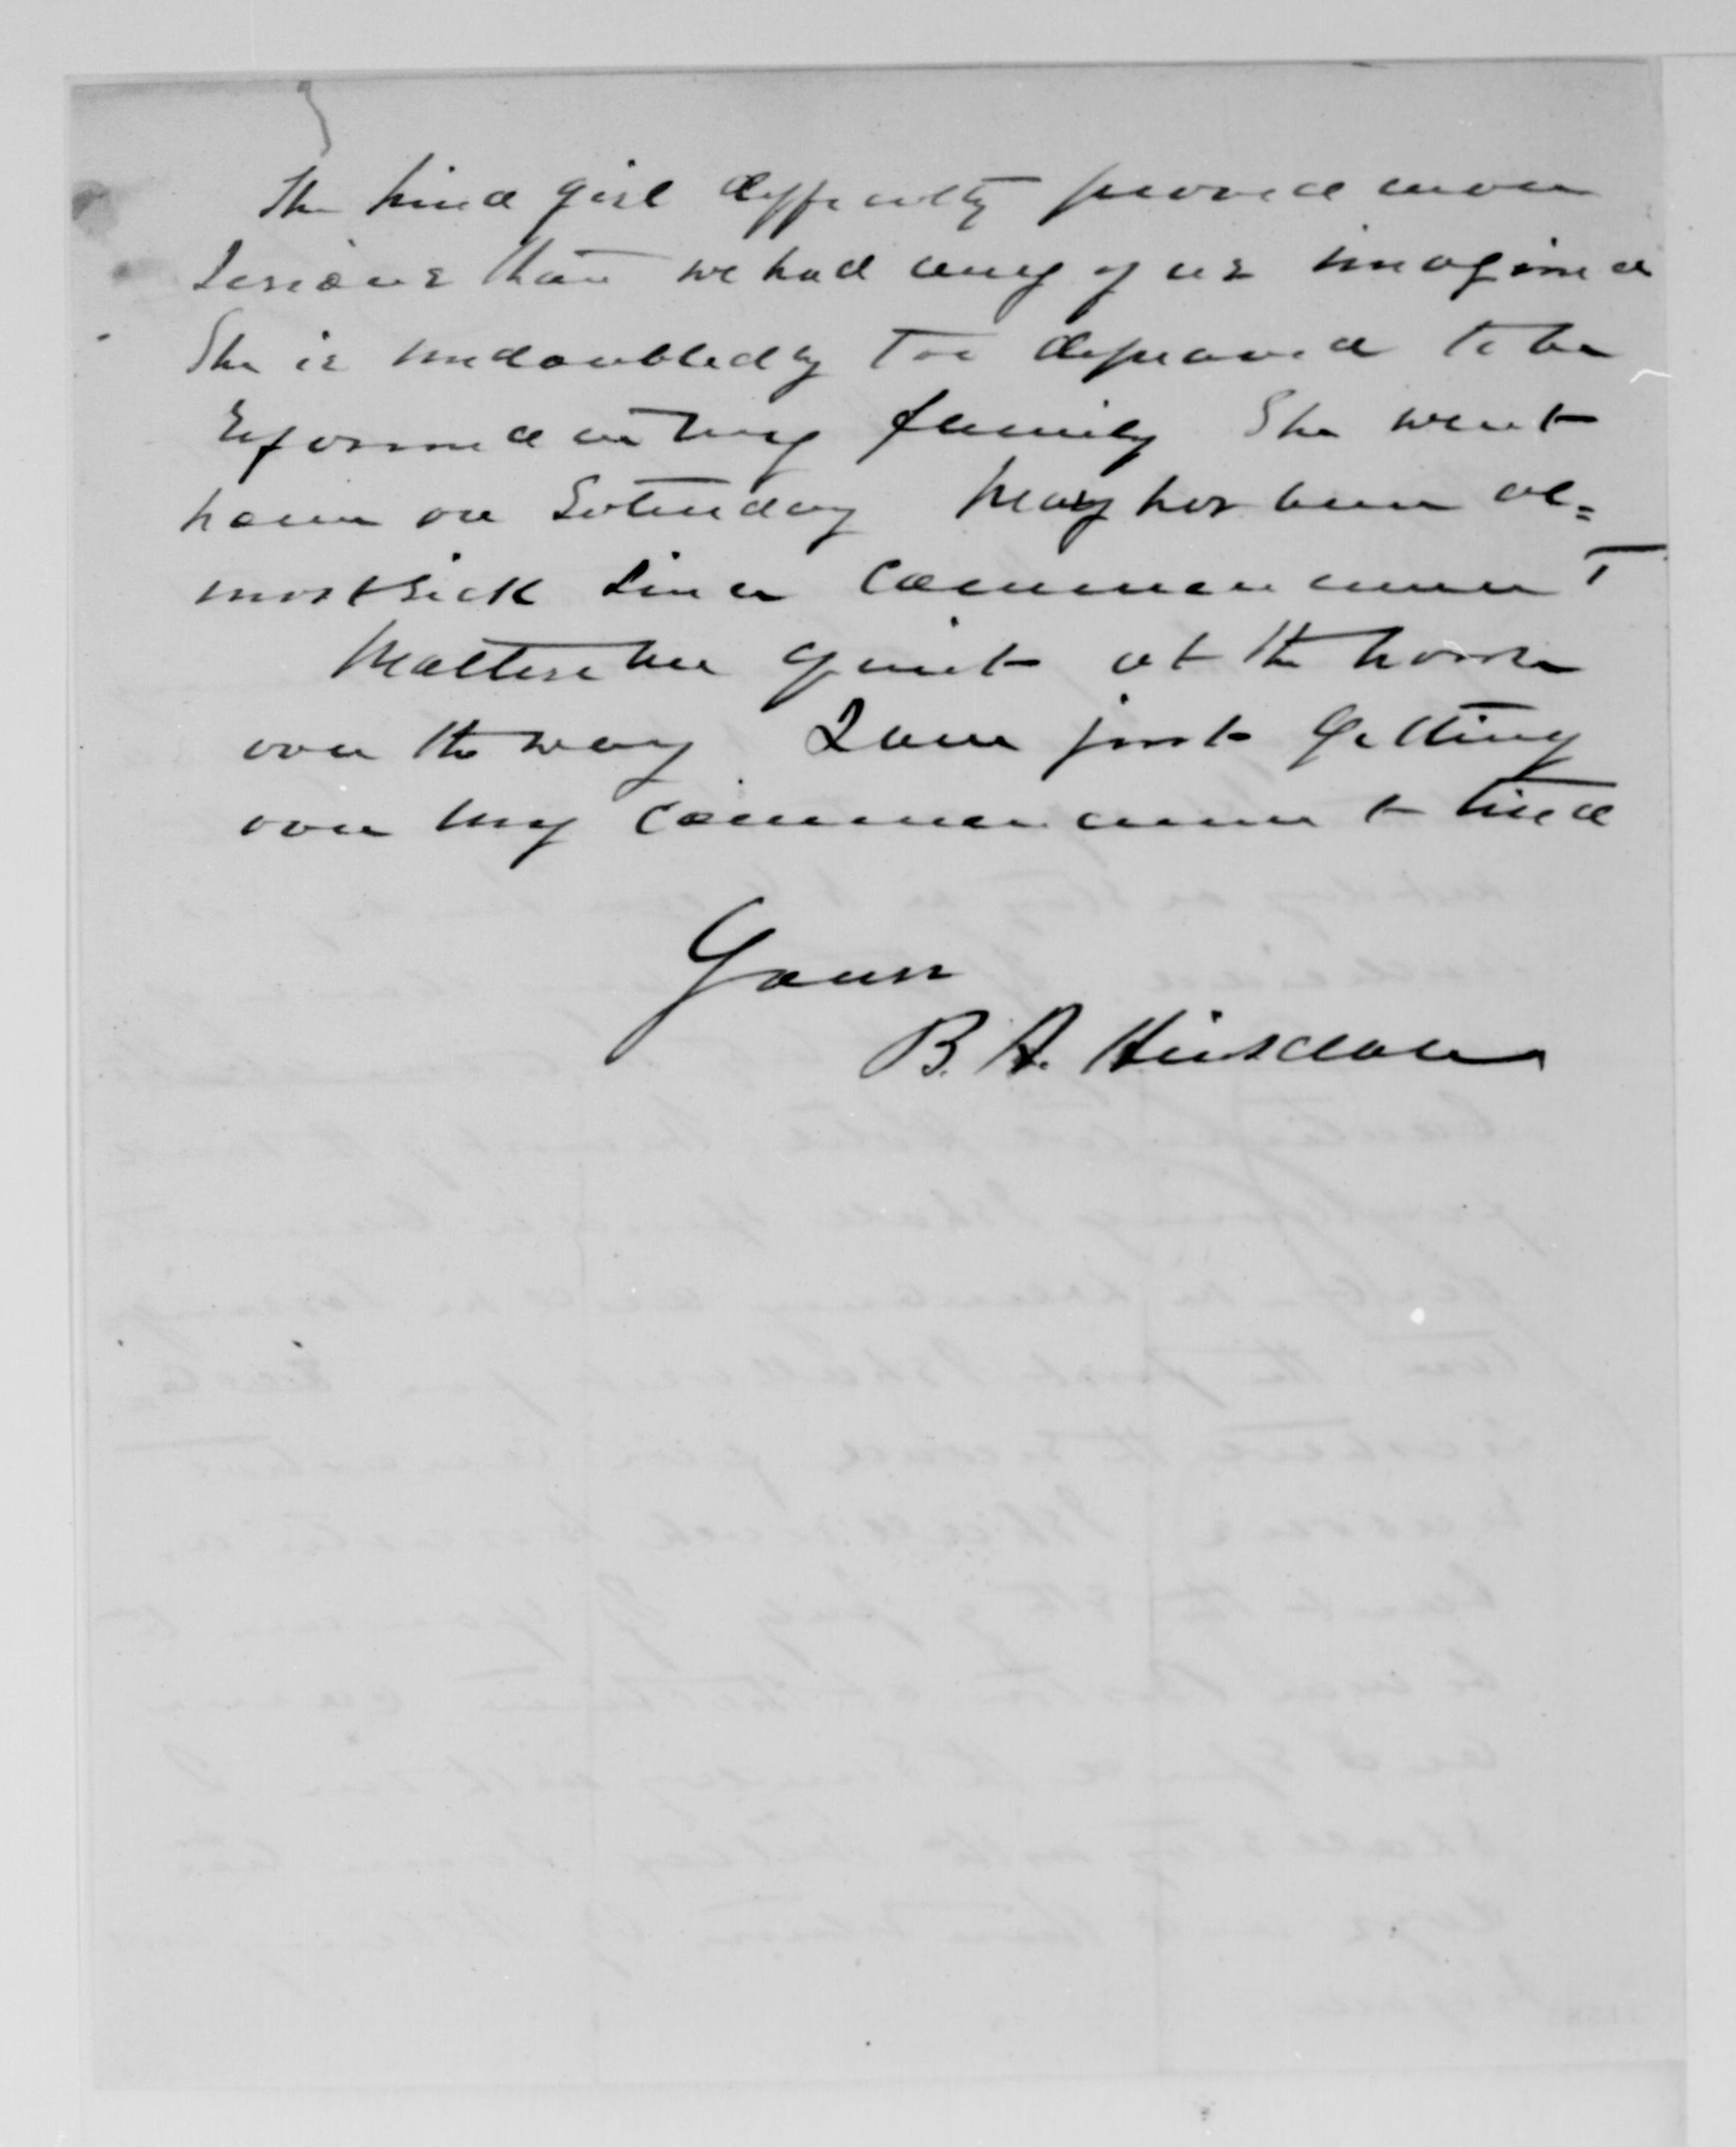 The hired girl difficulty proved more
serious than we had any of us imagined
She is undoubtedly too depraved to be
reformed in any family She went
home on Saturday Mary has been al=
most sick since Commencement
Matters are quiet at the house
over the way I am just getting
over my Commencement tired
Yours
B. A. Hinsdale